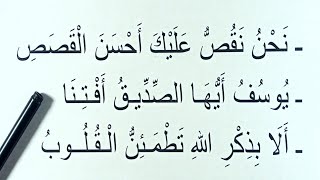 - نَحْنُ نَقُصُّ عَلَيْكَ أَحْسَنَ الْقَصَصِ
- يُوسُفُ أَيُّهَا الصِّدِّيقُ أَفْتِنَا
- أَلَا بِذِكْرِ اللهِ تَطْمَئِنُّ الْقُلُوبُ